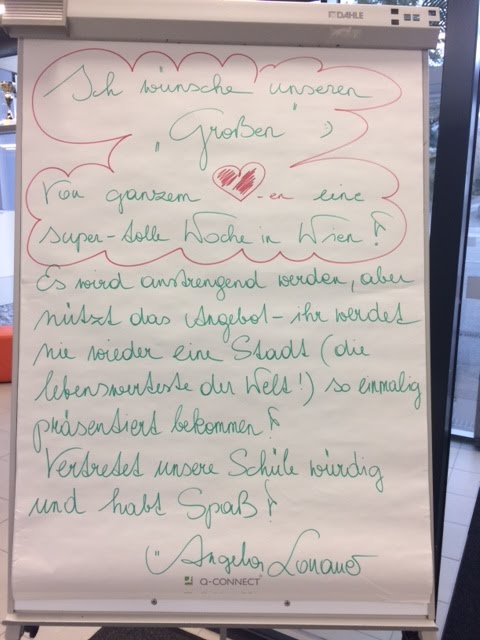 DAHLE
Ich wünsche unseren
„Großen“ ,
Von ganzem -en eine
super-tolle Woche in Wien!
Es wird anstrengend werden, aber
nützt das Angebot - ihr werdet
nie wieder eine Stadt (die
lebenswerteste der Welt!) so einmalig
präsentiert bekommen!
Vertretet unsere Schule würdig
und habt Spaß!
Angelia Lonauer
Q-CONNECT